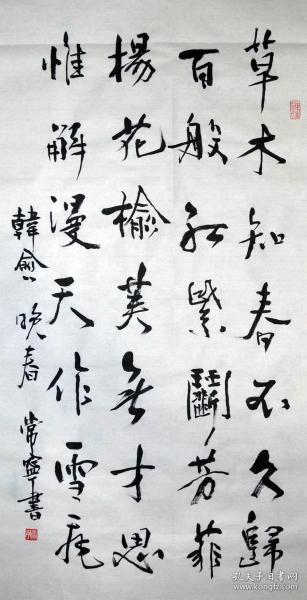 草木知春不久歸
百般紅紫鬭芳菲
楊花榆莢無才思
惟解漫天作雪飛
韓愈晚春 常寧書
孔夫子旧书网
www.kongfz.com